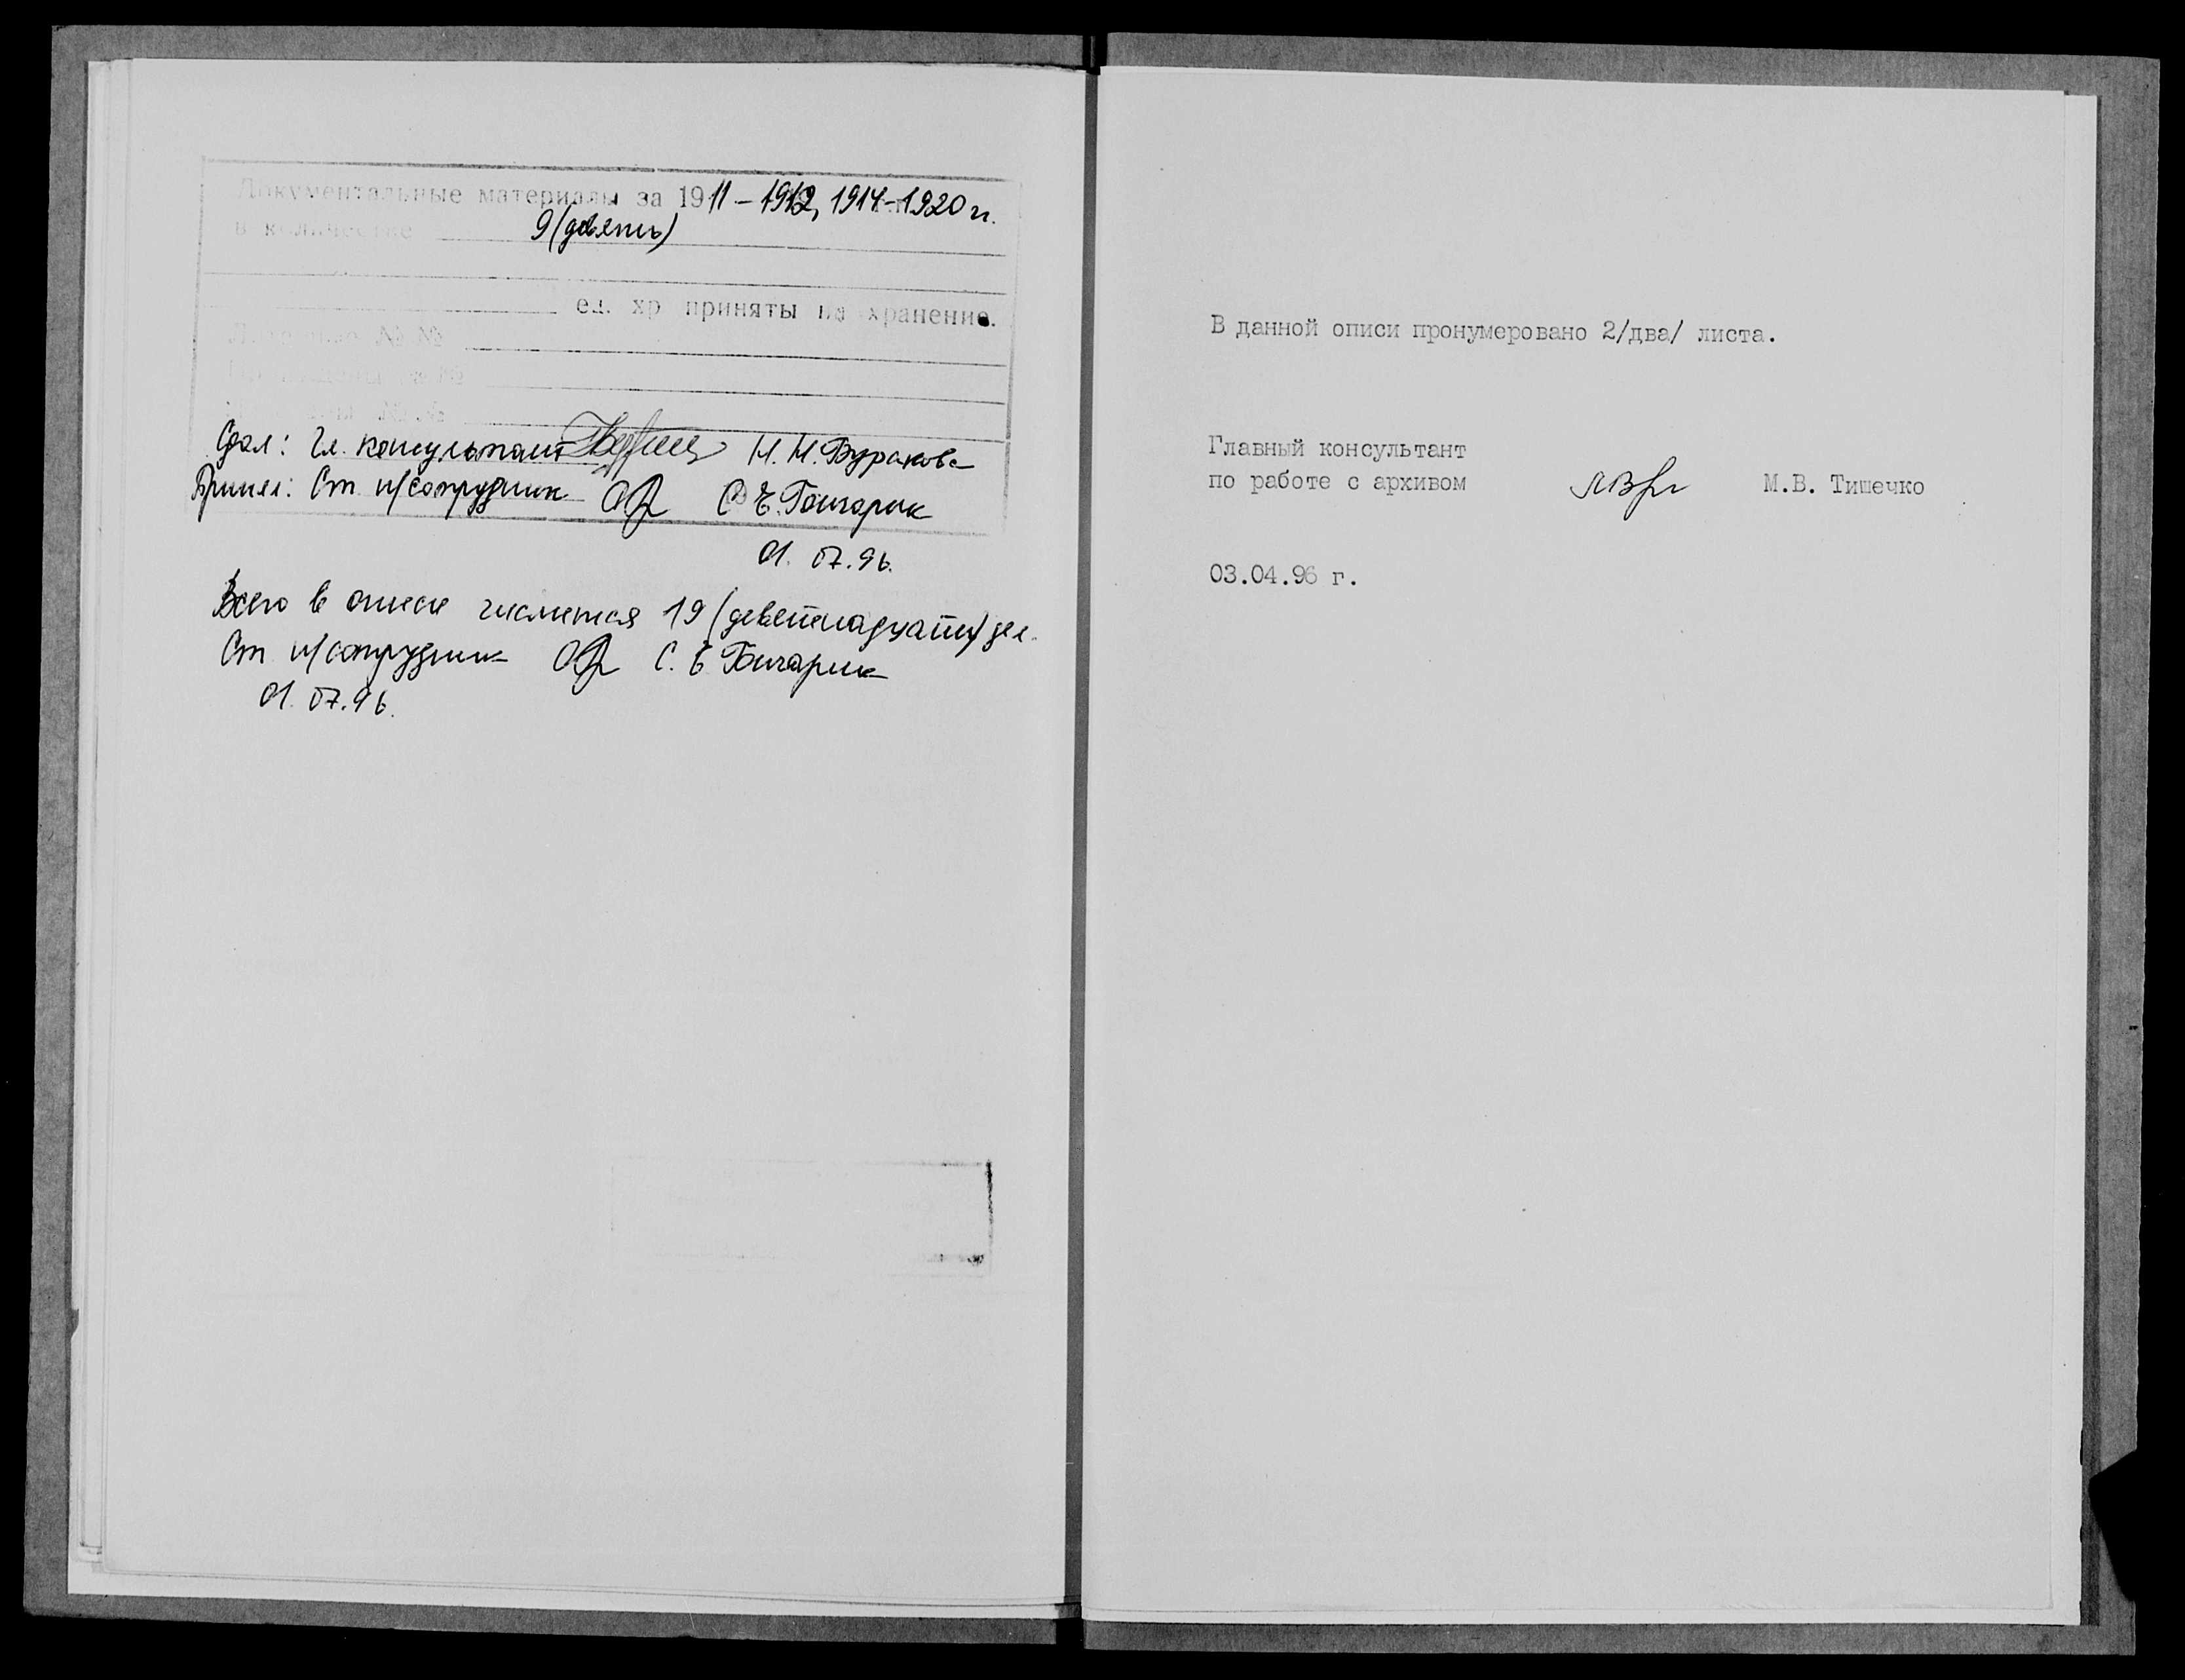 Документальные материалы за 1911 – 1912, 1914-1920 гг.
в количестве 9 (девять)
ед. хр приняты на хранение.
№ №
№ №
№ №
Сдал: Гл. консультант Н. Н. Буракова
Принял: Ст н/сотрудник С. Е. Гончарик
01. 07. 96.
Всего в описи числится 19 (девятнадцать) дел.
Ст н/сотрудник С. Е Гончарик
01. 07. 96.
В данной описи пронумеровано 2/два/ листа.
Главный консультант
по работе с архивом М.В. Тишечко
03.04.96 г.